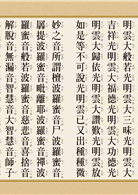 明雲大般若光明雲大三昧光明雲大
吉祥光明雲大福德光明雲大功德光
明雲大歸依光明雲大讚歎光明雲放
如是等不可說光明雲已又出種種微
妙之音所謂檀波羅蜜音尸波羅蜜音
羼提波羅蜜音毗離耶波羅蜜音禪波
羅蜜音般若波羅蜜音慈悲音喜捨音
解脫音無漏音智慧音大智慧音師子